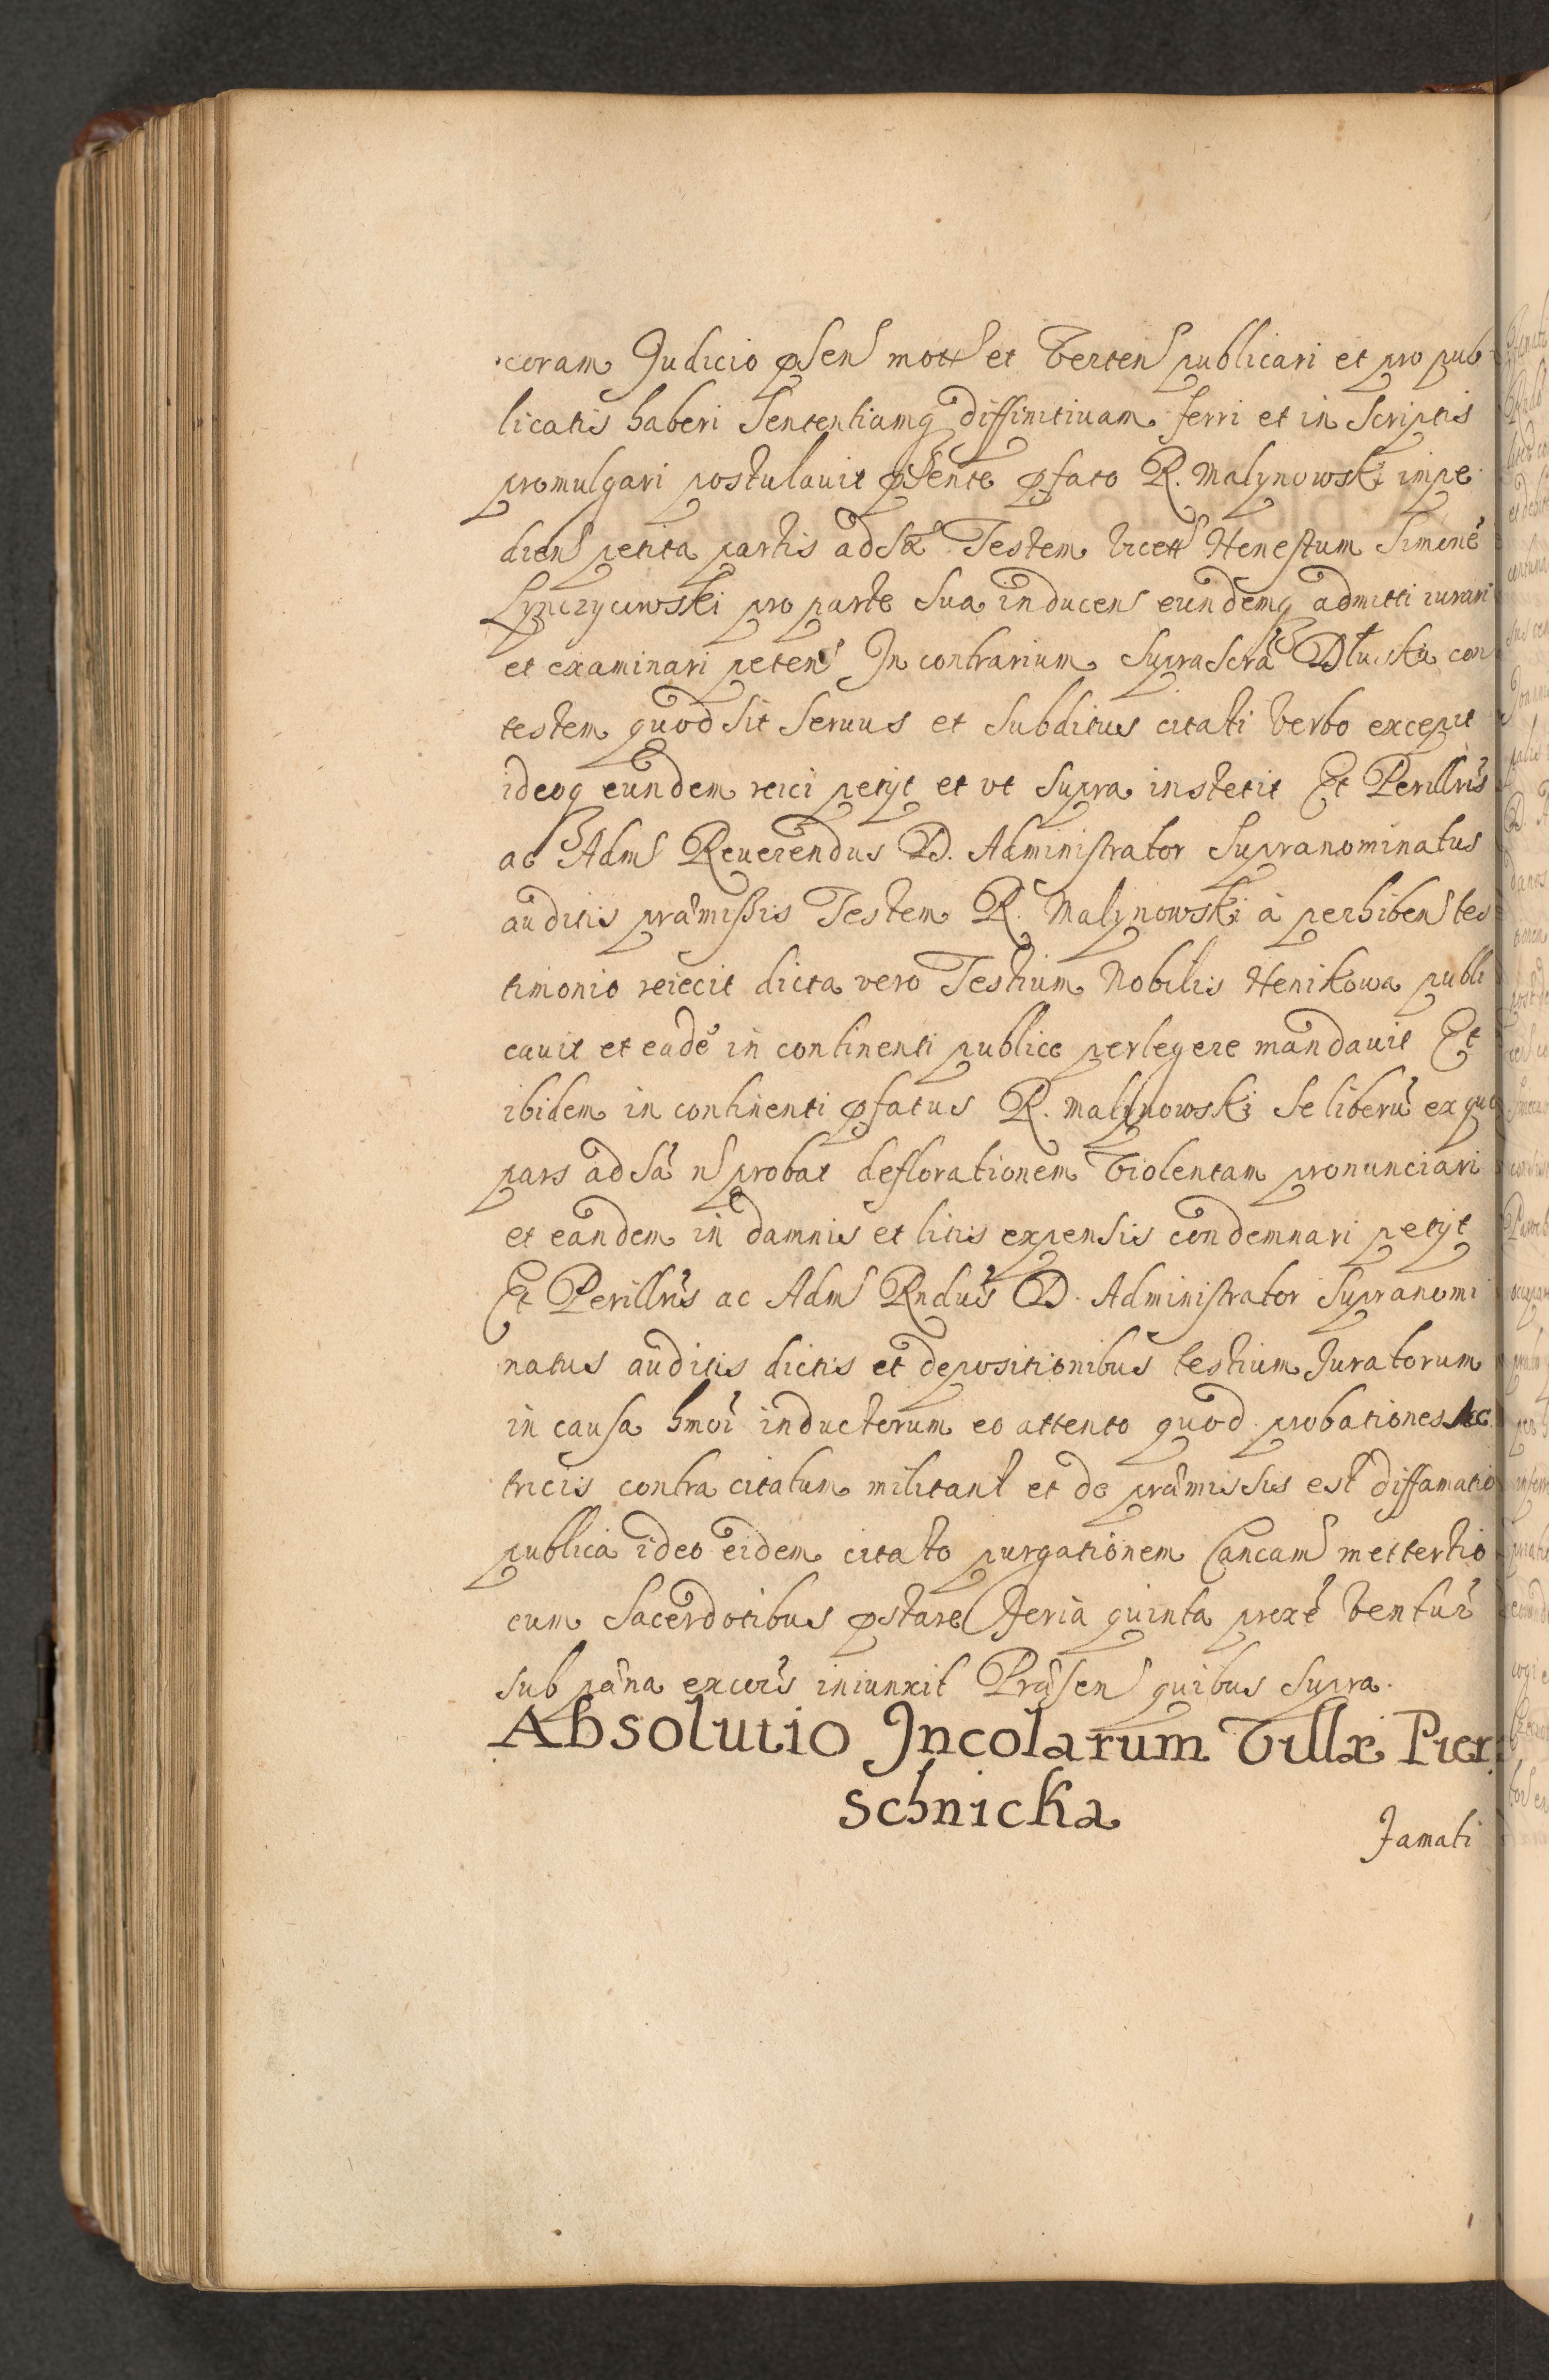 coram Judicio pṡens mott et verten publicari et pro pub
licatis haberi Sententiamq diffinitiuam ferri et in Scriptis
promulgari postulauit pṡente pfato R. Malynowski impe
diens petita partis adsæ Testem vicett Henestum Simonē
Lynczycowski pro parte Sua inducens eundemq admitti iurari
et examinari petens In contrarium suprascrā Dłuska con
testem quod sit seruus et subditus citati verbo excepit
ideoq eundem reici petyt et vt supra institit Et Perillris
ac Adms Reuerendus D. Administrator supranominatus
auditis præmissis Testem R. Malynowski à perhibens tes
timonio reiecit dicta vero Testium Nobilis Henikowa publi
cauit et eadē in continenti publice perlegere mandauit Et
ibidem in continenti pfatus R. Malynowski se liberū ex quo
pars adsā ns probat deflorationem violentam pronunciari
et eandem in damnis et litis expensis condemnari petyt
Et Perillris ac Adms Rndus D. Administrator supranomi
natus auditis dictis et depositionibus testium Juratorum
in causa hmōi inductorum eo attento quod probationes Ac
tricis contra citatum militant et de præmissis est diffamatio
publica ideo eidem citato purgationem Cancam mettertio
cum sacerdotibus pstare feria quinta proxē ventur
sub pæna excōis iniunxit Præsen quibus supra.
Absolutio Incolarum Villæ Pier
schnicka
Famati